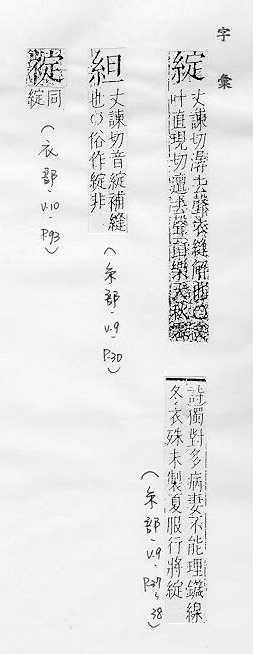 字彙
綻
丈諫切潺去聲衣縫解也
叶直現切纏去聲白樂天秋霖
詩獨對多病妻不能理鍼線
冬衣殊未製夏服行將綻
(糸部.v.9.P.37~38)
丈諫切音綻補縫
也○俗作綻非
(糸部.v.9.P.30)
同
綻
(衣部.v.10.P.93)